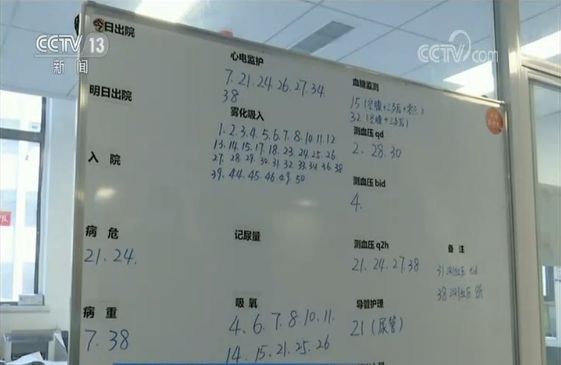 CCTV 13
新闻
CCTV.com
今日出院
明日出院
入院
病危
21.24.
病重
7.38
心电监护
7.21.24.26.27.34.
38
雾化吸入
1.2.3.4.5.6.7.8.10.11.12
13.14.15.17.18.23.24.25.26
27.28.29.30.31.32.33.34.36.38
39.44.45.46.49.50
记尿量
吸氧
4.6.7.8.10.11.
14.15.21.25.26
血糖监测
15(空腹+三餐后+
32(空腹+三餐后)
测血压 qd
2.28.30
测血压 bid
4.
测血压 q2h
21.24.27.38
导管护理
21(尿管)
备注
31测血压
38测血压